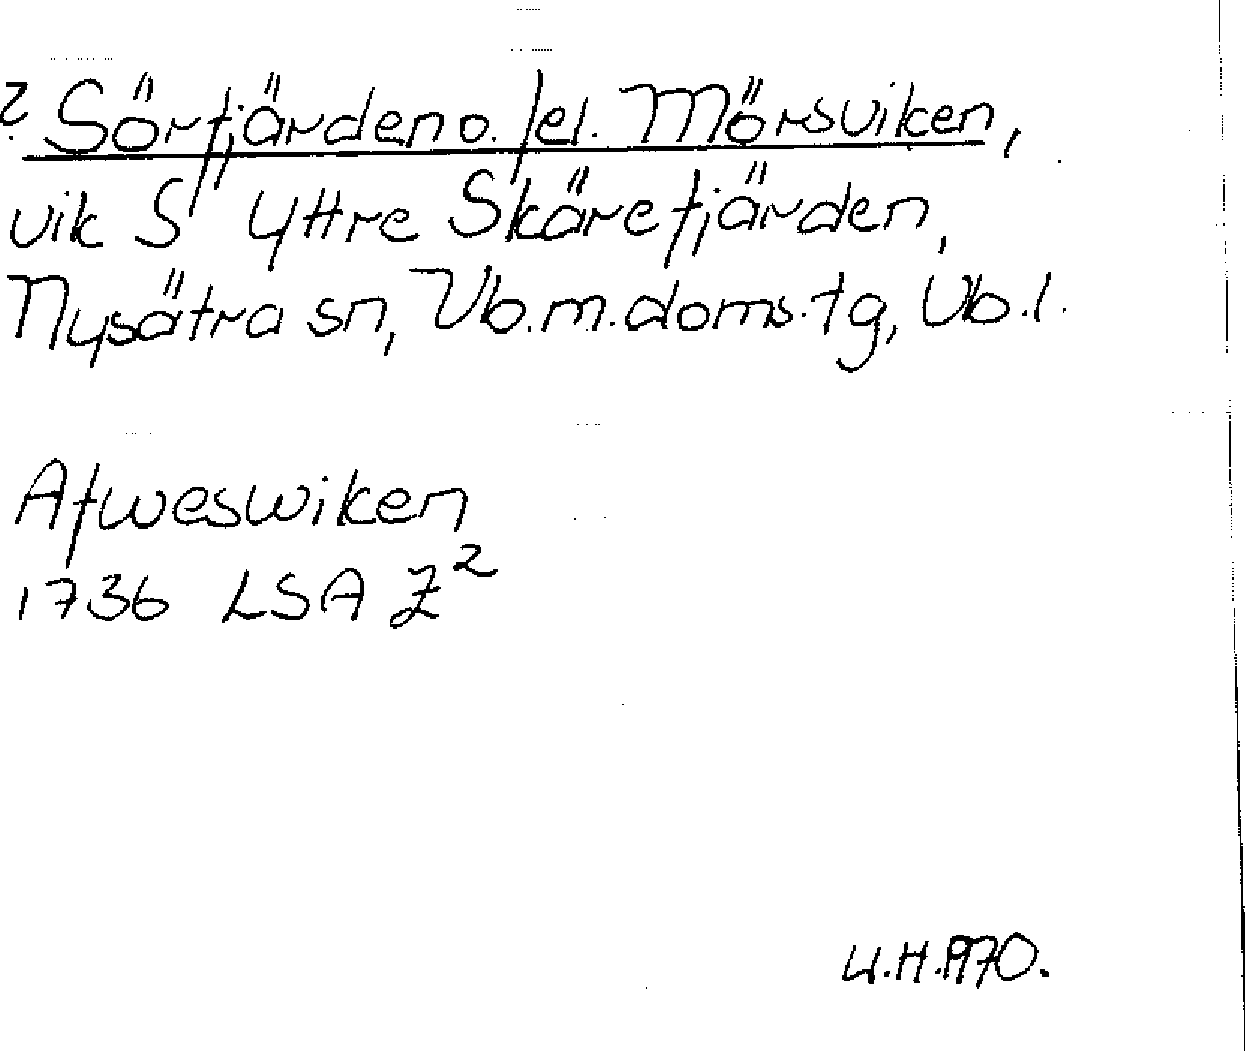 ? Sörfjärden o. /el. Mörsviken,
vik S Yttre Skärefjärden,
Nysätra sn, Vb.m.doms.tg, Vb.l.
Afweswiken
1736 LSA Z²
U.H.1970.